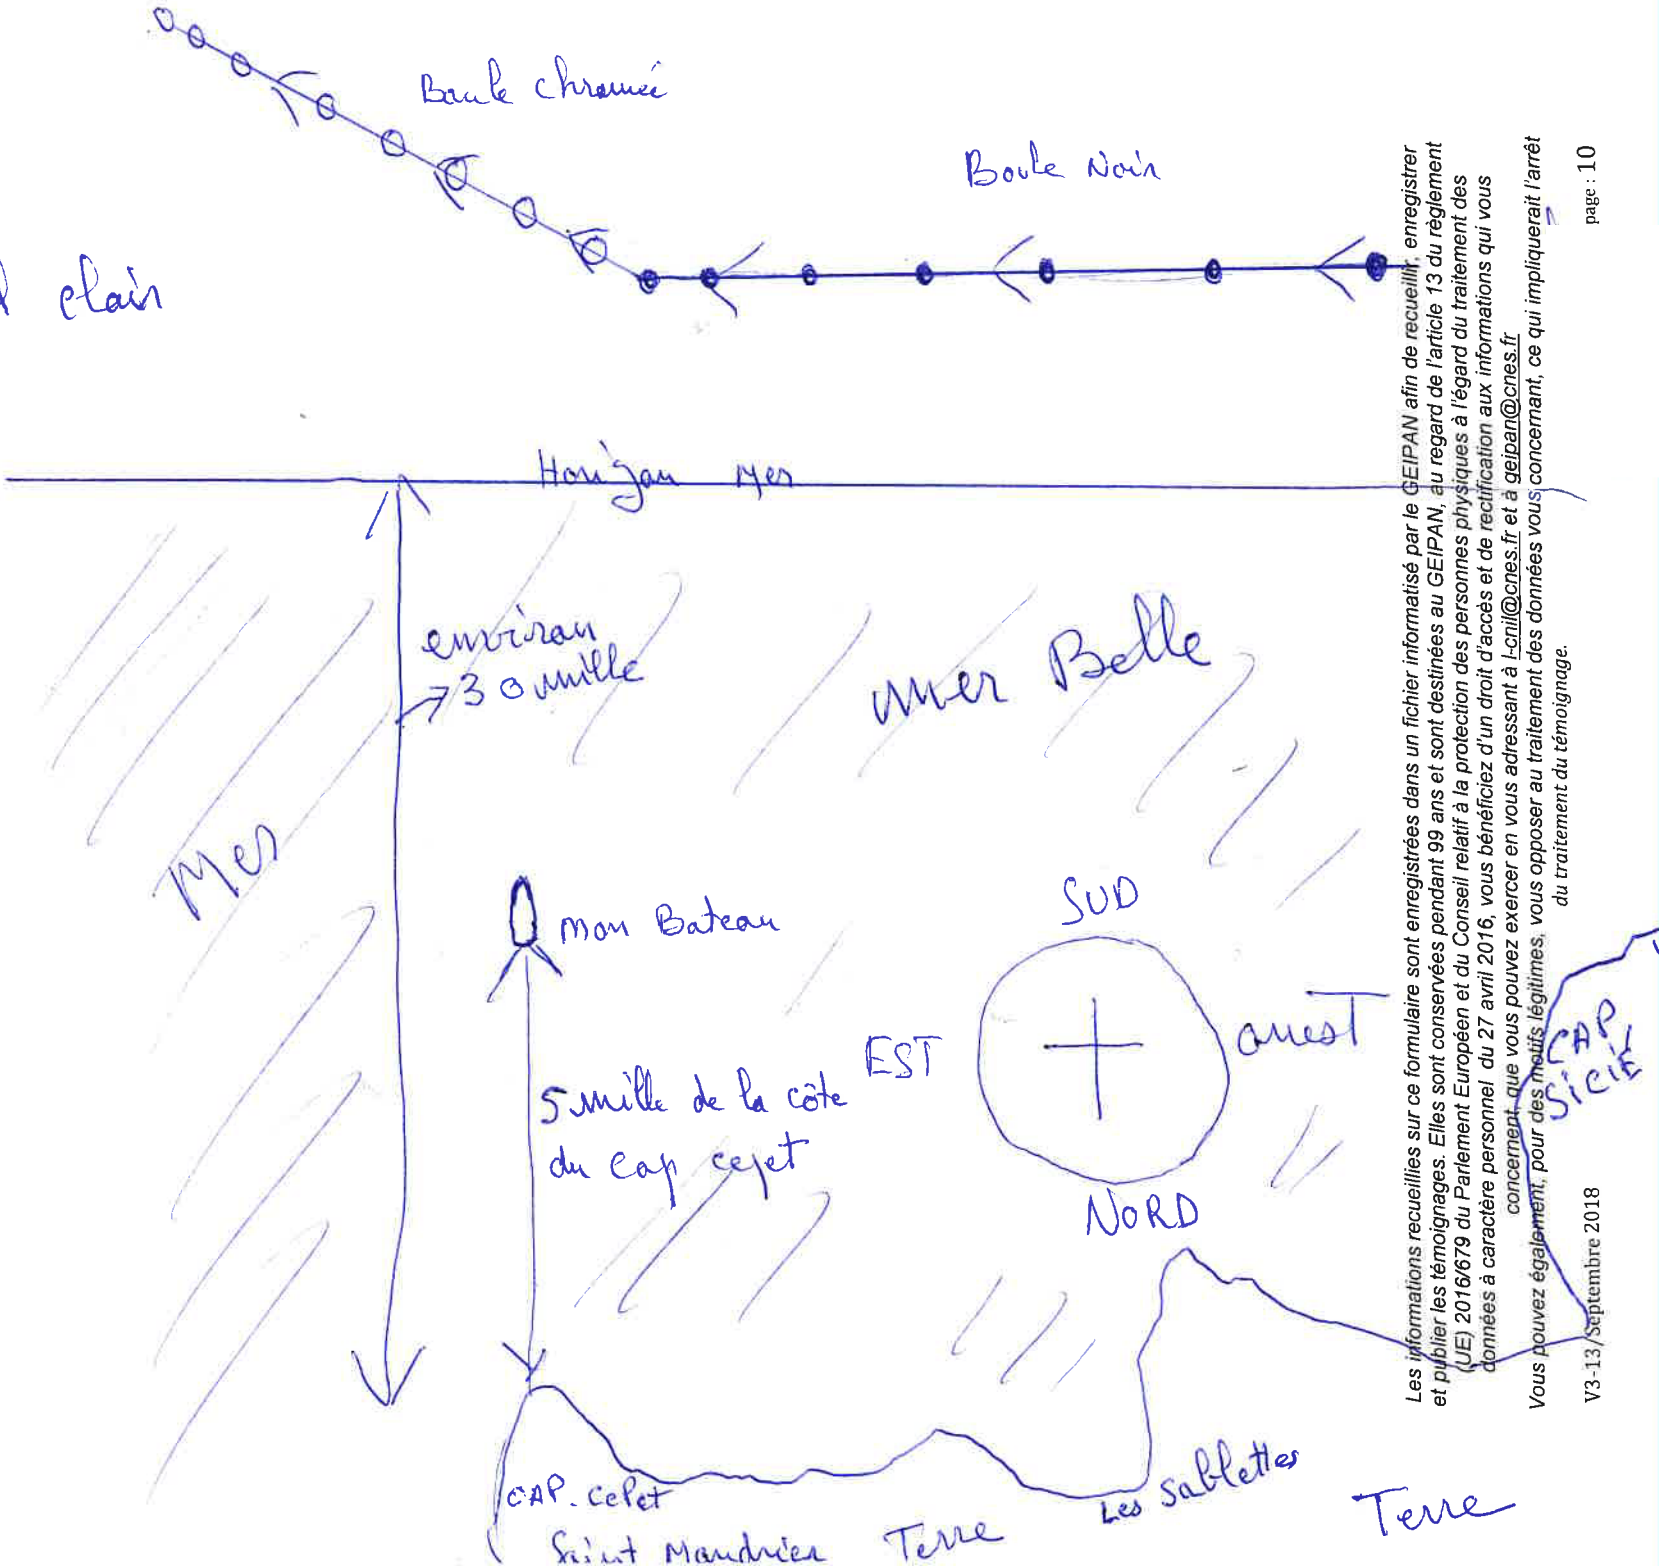 Boule chromée
Boule Noir
clair
Horizon Mer
environ
30 mille
mer Belle
Mer
mon Bateau
SUD
EST
ouest
NORD
5 mille de la côte
du cap cepet
CAP
SICIÉ
CAP. CePet
Saint Mandrier
Terre
Les Sablettes
Terre
Les informations recueillies sur ce formulaire sont enregistrées dans un fichier informatisé par le GEIPAN afin de recueillir, enregistrer
et publier les témoignages. Elles sont conservées pendant 99 ans et sont destinées au GEIPAN, au regard de l'article 13 du règlement
(UE) 2016/679 du Parlement Européen et du Conseil relatif à la protection des personnes physiques à l'égard du traitement des
données à caractère personnel du 27 avril 2016, vous bénéficiez d'un droit d'accès et de rectification aux informations qui vous
concernent, que vous pouvez exercer en vous adressant à l-cnil@cnes.fr et à geipan@cnes.fr
Vous pouvez également, pour des motifs légitimes, vous opposer au traitement des données vous concernant, ce qui impliquerait l'arrêt
du traitement du témoignage.
V3-13/Septembre 2018
page : 10